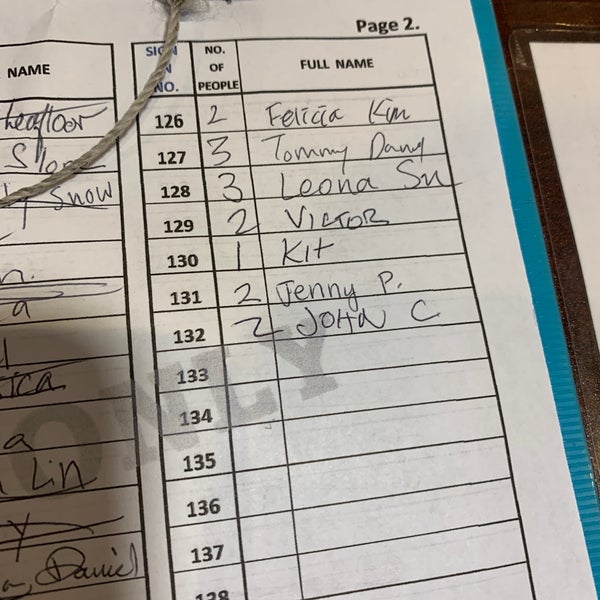 Page 2.
NAME
SIGN IN NO.
NO. OF PEOPLE
FULL NAME
126 2 Felicia Kim
127 3 Tommy Dang
128 3 Leona Su
129 2 VICTOR
130 1 Kit
131 2 Jenny P.
132 2 JOHN C
133
134
135
136
137
138
Snow
a
a
Lin
Daniel
ONLY